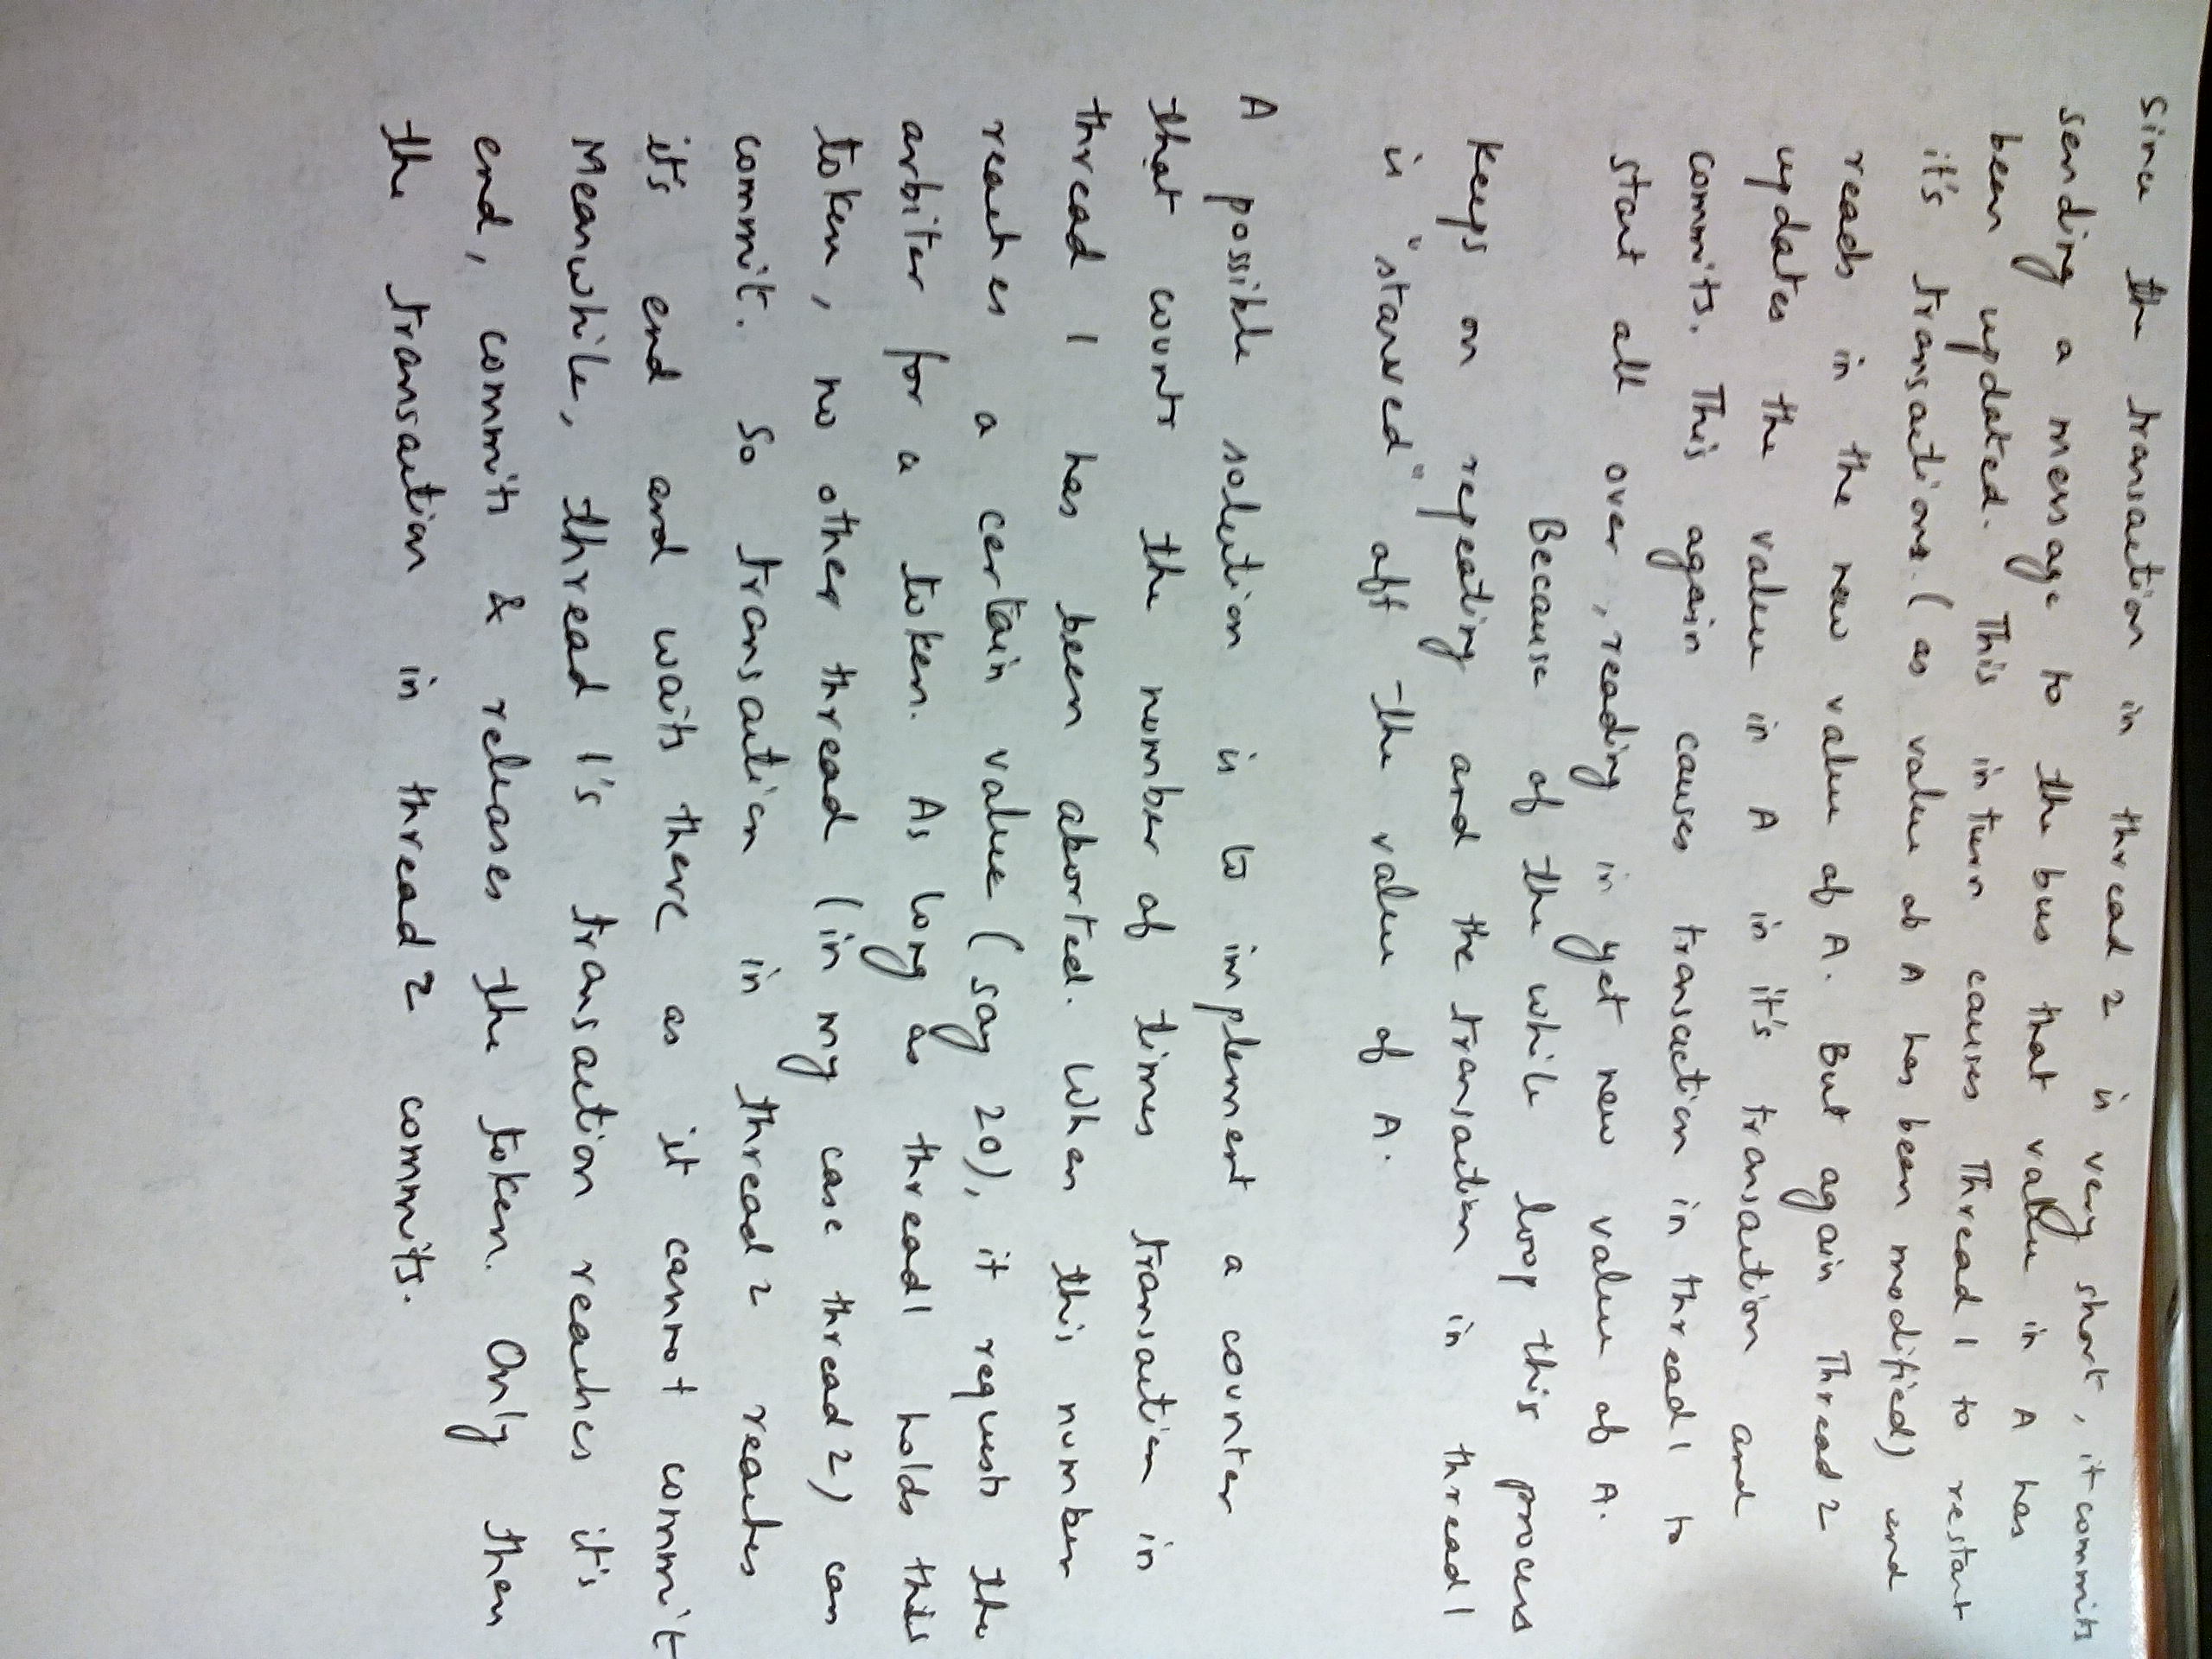 Since the transaction in thread 2 is very short, it commits
sending a message to the bus that value in A has
been updated. This in turn causes Thread 1 to restart
it's transactions. (as value of A has been modified) and
reads in the new value of A. But again Thread 2
updates the value in A in it's transaction and
commits. This again causes transaction in thread 1 to
start all over, reading in yet new value of A.
Because of the while loop this process
keeps on repeating and the transaction in thread 1
is "starved" off the value of A.
A possible solution is to implement a counter
that counts the number of times transaction in
thread 1 has been aborted. When this number
reaches a certain value (say 20), it requests the
arbiter for a token. As long as thread 1 holds this
token, no other thread (in my case thread 2) can
commit. So transaction in thread 2 reaches
it's end and waits there as it cannot commit
Meanwhile, thread 1's transaction reaches it's
end, commits & releases the token. Only then
the transaction in thread 2 commits.